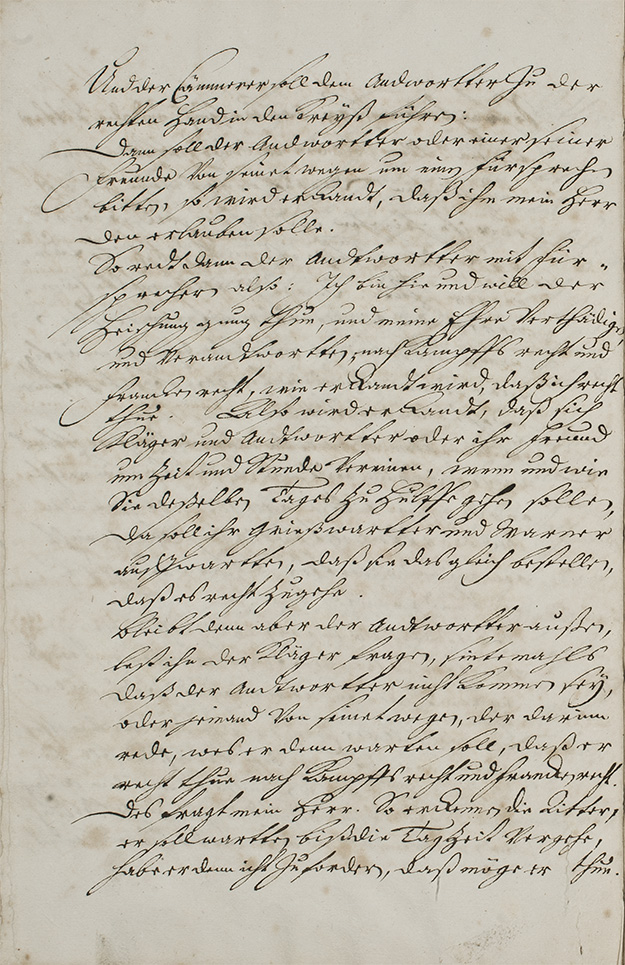 Und der Cämmerer soll dem Andwortter zu der
rechten Hand in den Kreÿß führen:
Dann soll der Andwortter oder einer seiner
Freunde von seinet wegen um einen fürsprechen
bitten, so wird erkandt, daß ihm mein Herr
den erlauben solle.
So redt dann der Andtwortter mit für„
sprechen also: Ich bin hie und will der
Heischung gnug thun, und meine Ehre verthädigen,
und verandtwortten, nach Kampffs recht und
Francken recht, wie erkandt wird, daß ich recht
thue. Also wird erkandt, daß sich
Kläger und Andtwortter oder ihr freund
um Zeit und Stunde vereinen, wenn und wie
Sie desselben Tages zu Hülffe gehen sollen,
da soll ihr Grießwartter und Warner
auffwartten, daß sie das gleich bestellen,
daß es recht zugehe.
Bleibt denn aber der Andtwortter außen,
leß ihn der Kläger fragen, sintemahls
daß der Andtwortter nicht kommen seÿ,
oder jemand von seinet wegen, der darum
rede, wes er denn warten soll, daß er
recht thue nach Kampffs recht und francken recht.
Des fragt mein Herr. So erckennen die Ritter,
er soll wartten biß die Tag Zeit vergehe,
habe er denn icht zu fordern, daß möge er thun.